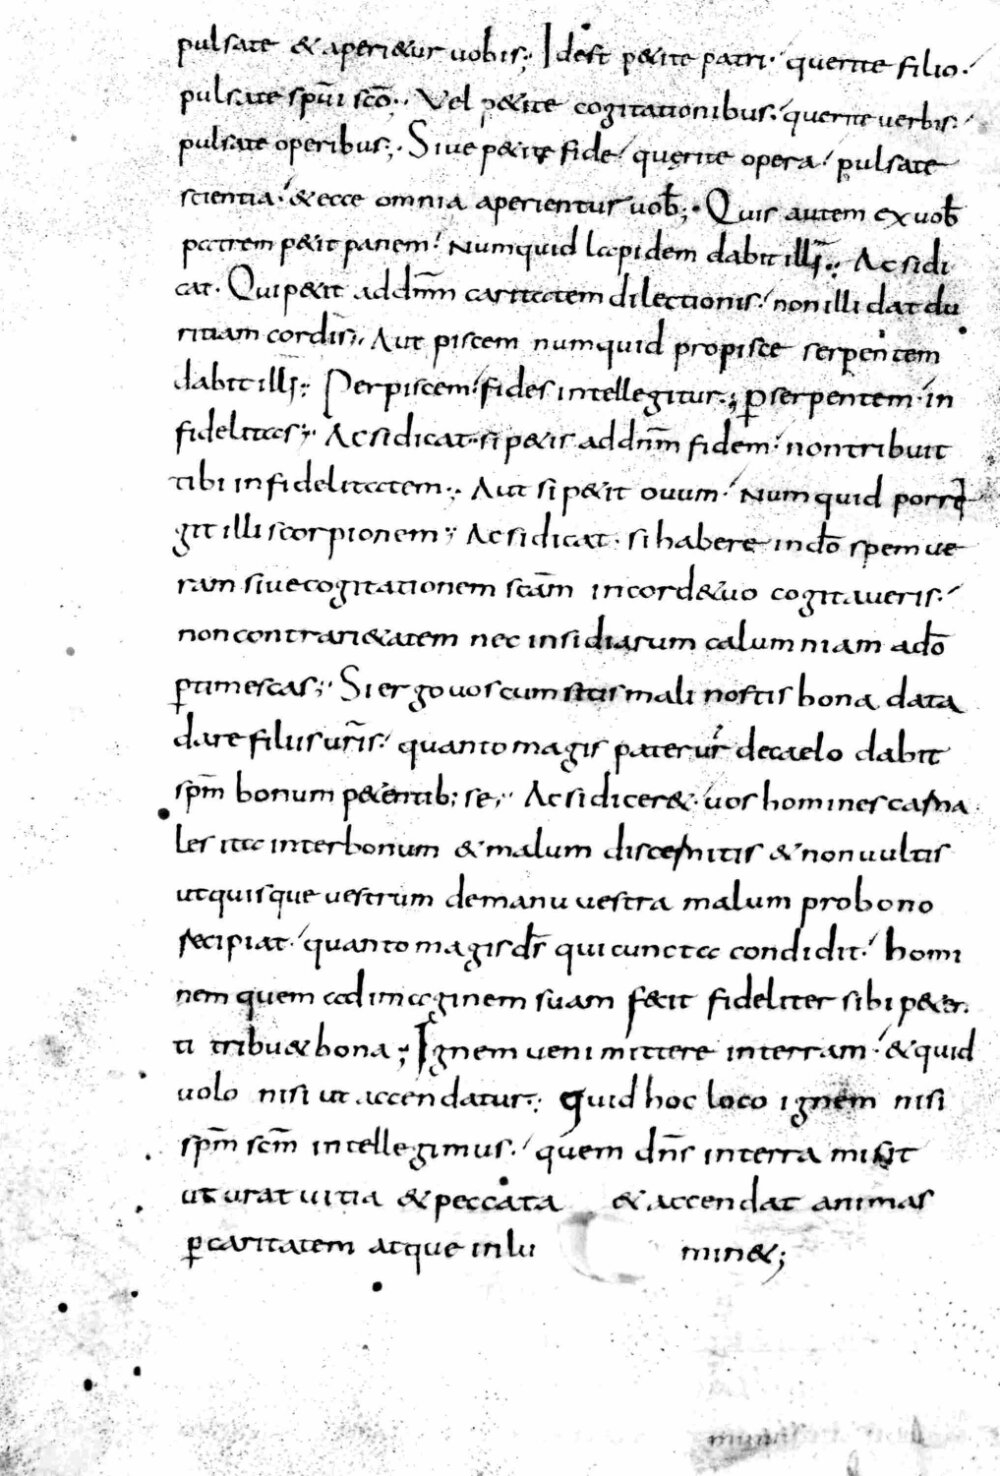 pulsate & aperi&ur uobis; Idest p&ite patri. querite filio.
pulsate sp̄ui sc̄o. Vel p&ite cogitationibus. querite verbis.
pulsate operibus; Siue p&ite fide querite opera. pulsate
scientia. & ecce omnia aperientur uob̄; Quis autem ex uob̄
patrem p&it panem. Numquid lapidem dabit illi; Ac si di
cat. Qui p&it ad dn̄m caritatem dilectionis. non illi dat du
ritiam cordis; Aut piscem numquid propisce serpentem
dabit illi; Per piscem fides intellegitur; ꝑ serpentem in
fidelitas; Ac si dicat si p&is ad dn̄m fidem. non tribuit
tibi infidelitatem; Aut si p&it ouum. Numquid porrę
git illi scorpionem; Ac si dicat. si habere in dō spem ue
ram siue cogitationem sc̄am in corde tuo cogitaueris.
non contrari&atem nec insidiarum calumniam a dō
ꝑtimescas; Si ergo uos cum sitis mali nostis bona data
dare filiis ur̄is. quanto magis pater ur̄ de caelo dabit
sp̄m bonum p&entib; se; Ac si dicer&. uos homines carna
les ita inter bonum & malum discernitis & non uultis
ut quisque uestrum de manu uestra malum pro bono
recipiat. quanto magis dš qui cuncta condidit. homi
nem quem ad imaginem suam fecit fideliter sibi p&en
ti tribu& bona; Ignem ueni mittere in terram. & quid
uolo nisi ut accendatur; Quid hoc loco ignem nisi
sp̄m sc̄m intellegimus. quem dn̄s in terra misit
ut urat uitia & peccata & accendat animas
ꝑ caritatem atque inlu min&;